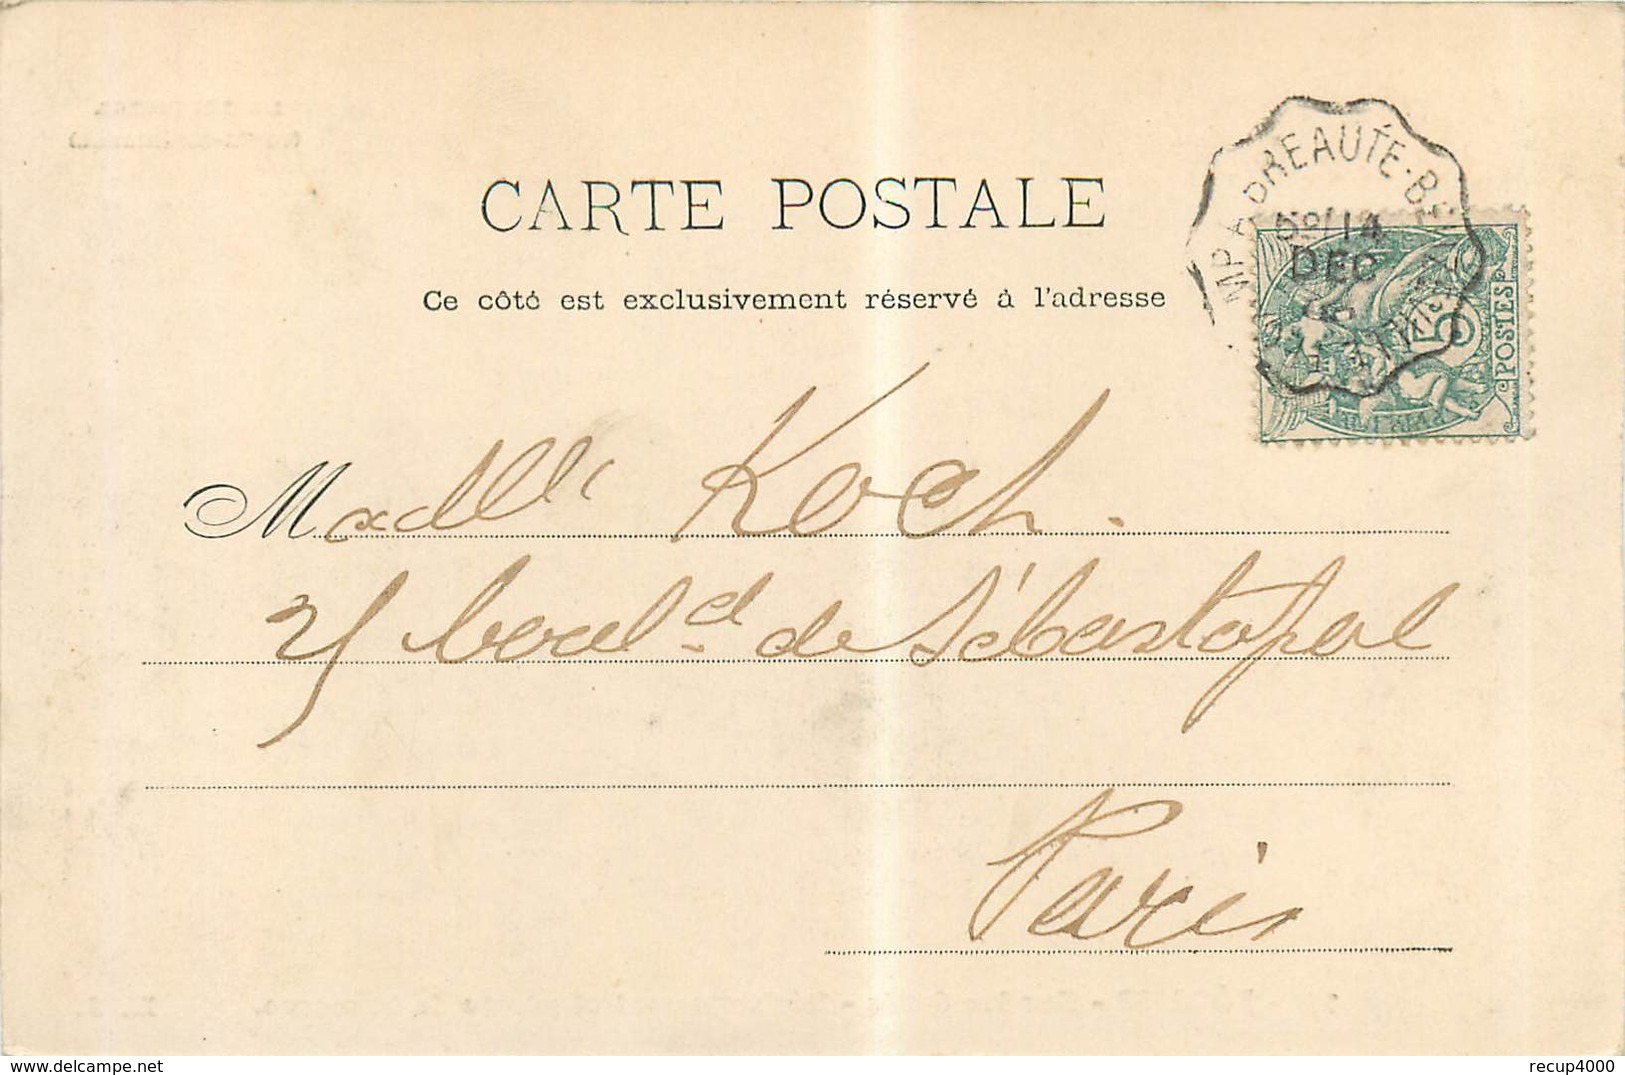 CARTE POSTALE
Ce côté est exclusivement réservé à l'adresse
MP A BREAUTÉ-B
14
DEC
5
POSTES
Madlle Koch.
25 boul.d de Sébastopol
Paris
recup4000